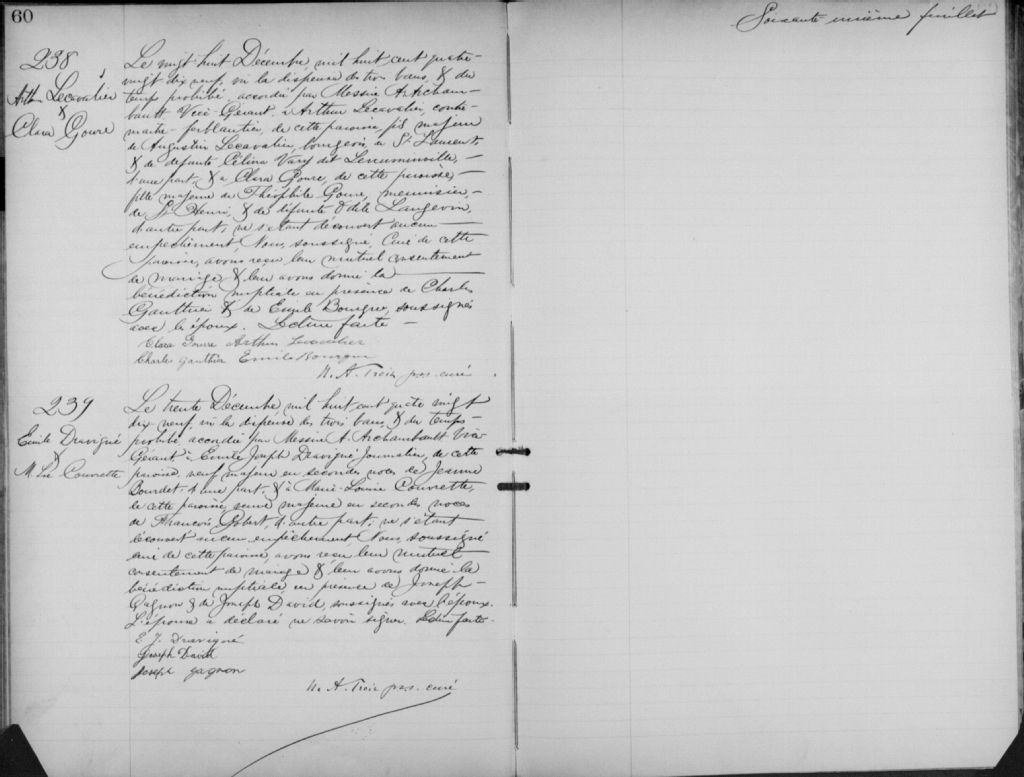 60
238
Arth Lecavalier
&
Clara Goure
Le vingt huit Décembre, mil huit cent quatre-
vingt dix neuf, vu la dispense de trois bans, & du
temps prohibé, accordée par Messire A. Archam-
bault Vice-Gérant, à Arthur Lecavalier, contre-
maître-ferblantier, de cette paroisse, fils majeur
de Augustin Lecavalier, bourgeois, de St Laurent,
& de défunte Célina Vary dit
d'une part, & à Clara Goure, de cette paroisse,
fille majeure de Théophile Goure, menuisier,
de St Henri, & de défunte Odile Langevin,
d'autre part, ne s'étant découvert aucun
empêchement, Nous, soussigné, Curé de cette
paroisse, avons reçu leur mutuel consentement
de mariage & leur avons donné la
bénédiction nuptiale en présence de Charles
Gauthier & de Emile Bourque, soussignés
avec les époux. Lecture faite
Clara Goure Arthur Lecavalier
Charles Gauthier Emile Bourque
N. A. Troie ptre. curé
239
Emile Dravigné
&
M. Lse Couvrette
Le trente Décembre mil huit cent quatre vingt
dix-neuf, vu la dispense des trois bans, & du temps
prohibé, accordée par Messire A. Archambault Vice
Gérant à Emile Joseph Dravigné Journalier, de cette
paroisse, veuf majeur en secondes noces de Jeanne
Bourdet, d'une part, & à Marie-Louise Couvrette,
de cette paroisse, veuve majeure en secondes noces
de François Gobert, d'autre part; ne s'étant
découvert aucun empêchement Nous, soussigné
curé de cette paroisse, avons reçu leur mutuel
consentement de mariage & leur avons donné la
bénédiction nuptiale, en présence de Joseph
Gagnon & de Joseph David, soussignés avec l'époux.
L'épouse a déclaré ne savoir signer. Lecture faite.
E J. Dravigné
Joseph David
Joseph gagnon
N. A. Troie ptre. curé
Soixante unième feuillet